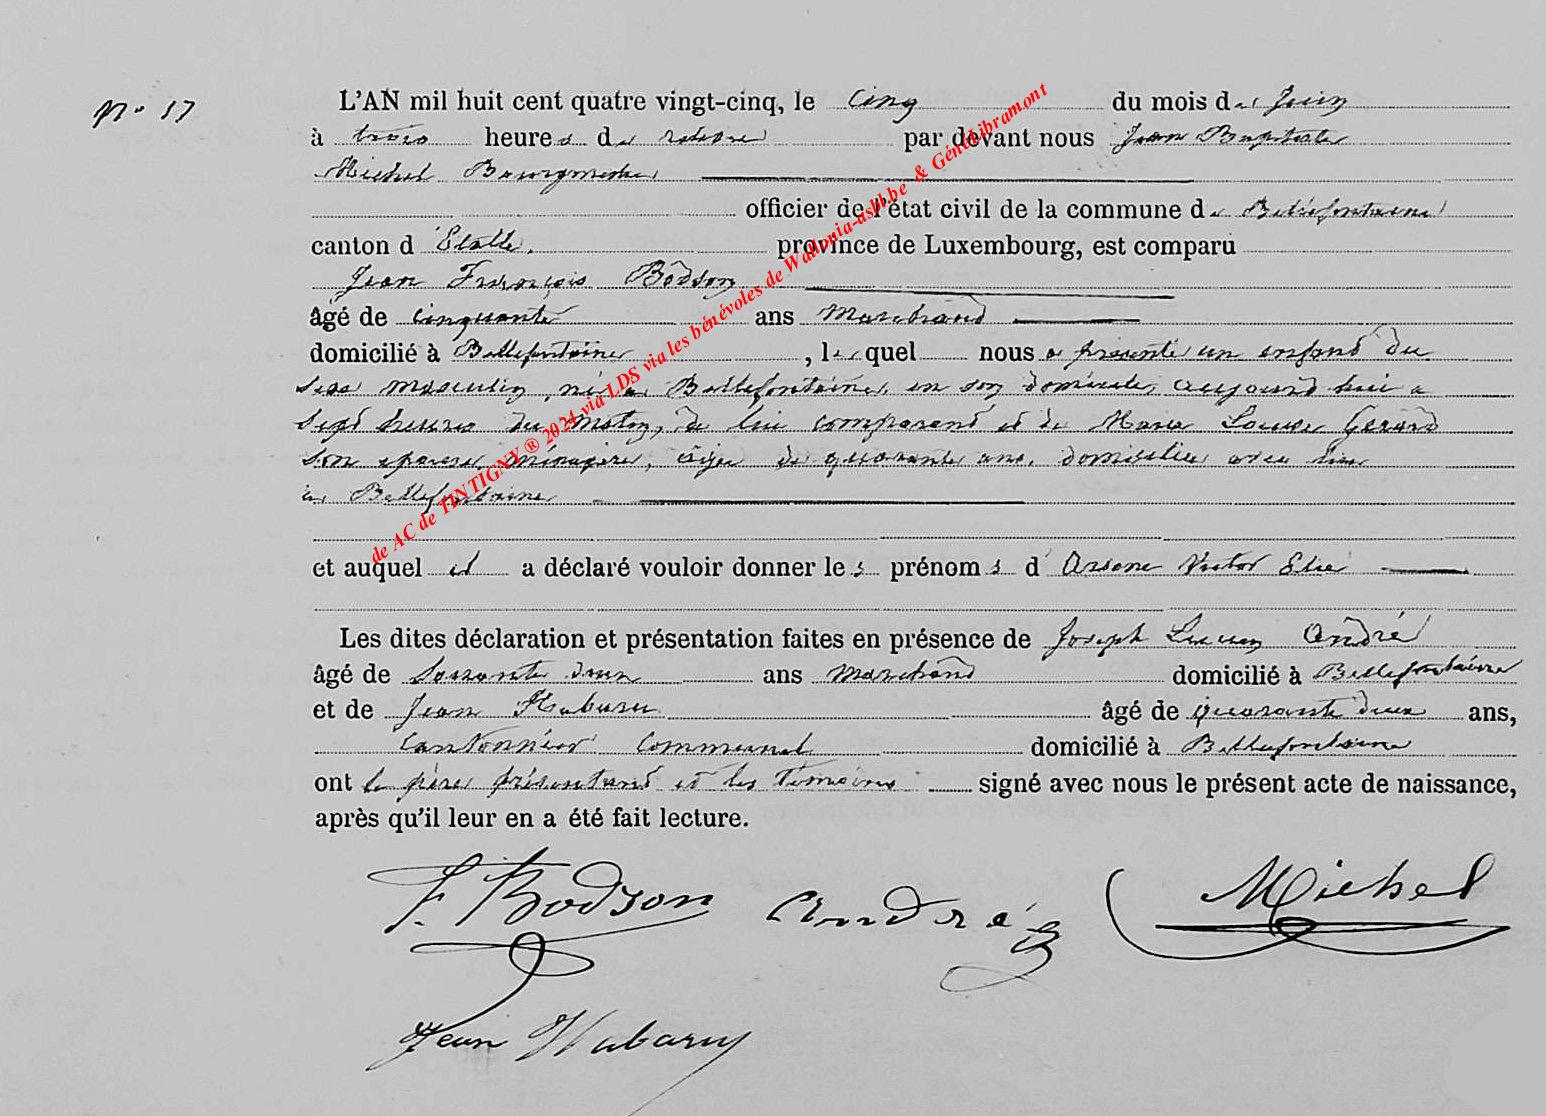 N° 17
L'AN mil huit cent quatre vingt-cinq, le cinq du mois de Juin
à trois heures de relevée par devant nous Jean Baptiste
Michel Bourgmestre
officier de l'état civil de la commune de Bellefontaine
canton d'Etalle, province de Luxembourg, est comparu
Jean François Bodson
âgé de cinquante ans Marchand
domicilié à Bellefontaine, lequel nous a présenté un enfant du
sexe masculin, né à Bellefontaine, en son domicile, aujourd'hui à
sept heures du matin, de lui comparant et de Marie Louise Gérard
son épouse, ménagère, âgée de quarante ans, domiciliée avec lui
à Bellefontaine
et auquel il a déclaré vouloir donner les prénoms d'Arsène Victor Elie
Les dites déclaration et présentation faites en présence de Joseph Lucien André
âgé de soixante deux ans Marchand domicilié à Bellefontaine
et de Jean Habaru âgé de quarante deux ans,
cantonnier communal domicilié à Bellefontaine
ont le père présentant et les témoins signé avec nous le présent acte de naissance,
après qu'il leur en a été fait lecture.
F. Bodson André Michel
Jean Habaru
de AC de TINTIGNY ® 2024 via LDS via les bénévoles de Wallonia-asbl.be & GénéLibramont